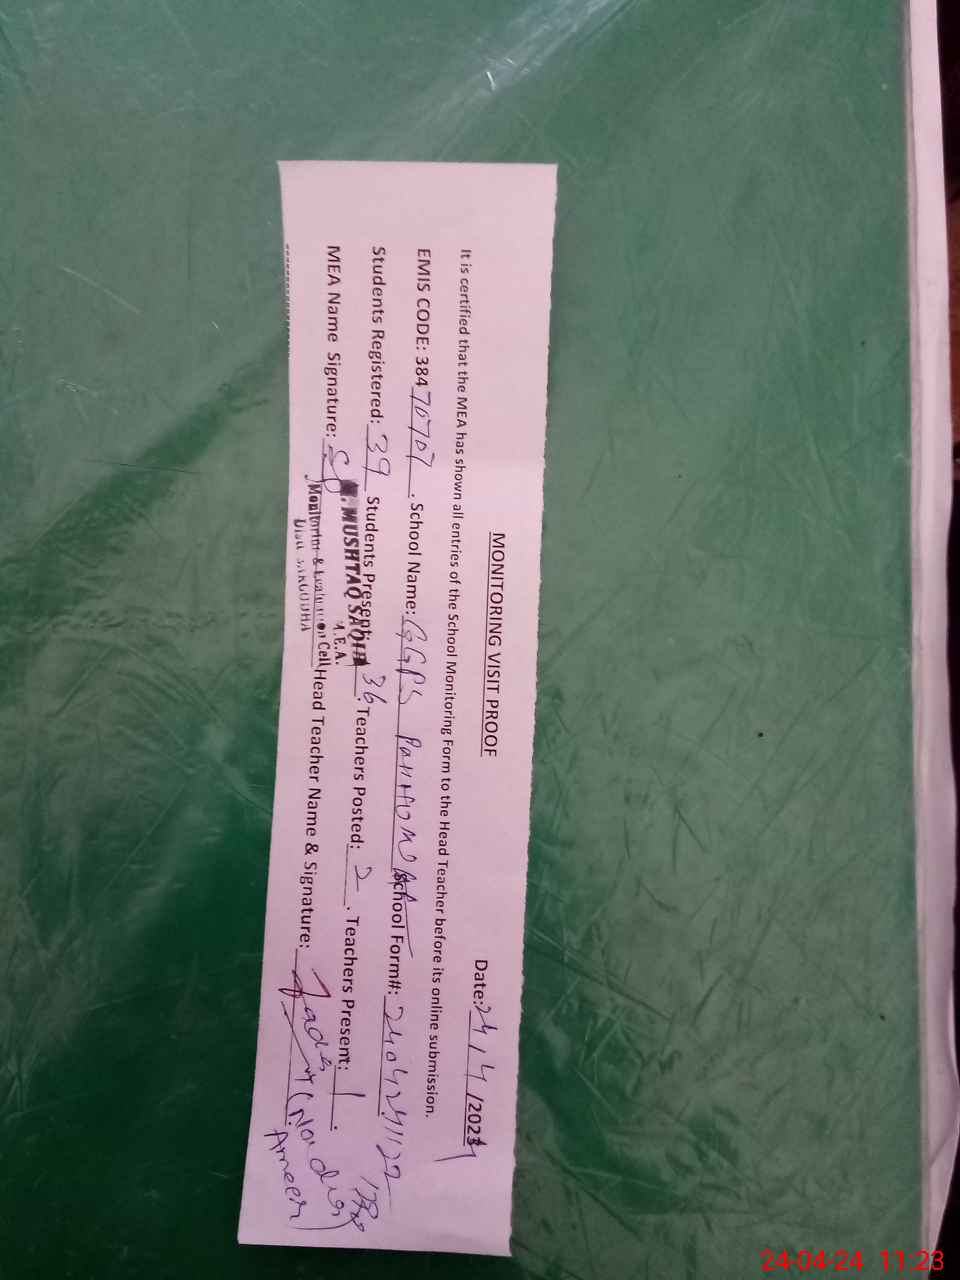 MONITORING VISIT PROOF
Date: 24/4/2024
It is certified that the MEA has shown all entries of the School Monitoring Form to the Head Teacher before its online submission.
EMIS CODE: 38470707. School Name: GGPS School Form#: 2404241122
Students Registered: 39 Students Present: 36. Teachers Posted: 2. Teachers Present: 1.
MEA Name Signature: Head Teacher Name & Signature:
M. MUSHTAQ SAQIB
M.E.A.
Monitoring & Evaluation Cell
Distt SARGODHA
Ameer)
24-04-24 11:23